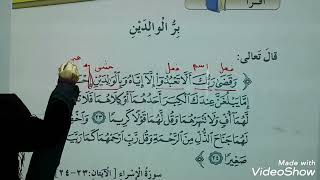 اقرأ
بِرُّ الْوالِدَيْنِ
قالَ تَعالى:
فعل اسم فعل
﴿ وَقَضَىٰ رَبُّكَ أَلَّا تَعْبُدُوا إِلَّا إِيَّاهُ وَبِالْوَالِدَيْنِ
إِمَّا يَبْلُغَنَّ عِندَكَ الْكِبَرَ أَحَدُهُمَا أَوْ كِلَاهُمَا فَلَا
وَلَا تَنْهَرْهُمَا وَقُل لَّهُمَا قَوْلًا كَرِيمًا ﴿٢٣﴾
لَهُمَا جَنَاحَ الذُّلِّ مِنَ الرَّحْمَةِ وَقُل رَّبِّ ارْحَمْهُمَا كَمَا
صَغِيرًا ﴿٢٤﴾
سورَةُ الْإِسْراءِ [الْآيَتانِ: ٢٣-٢٤]
Made with
VideoShow